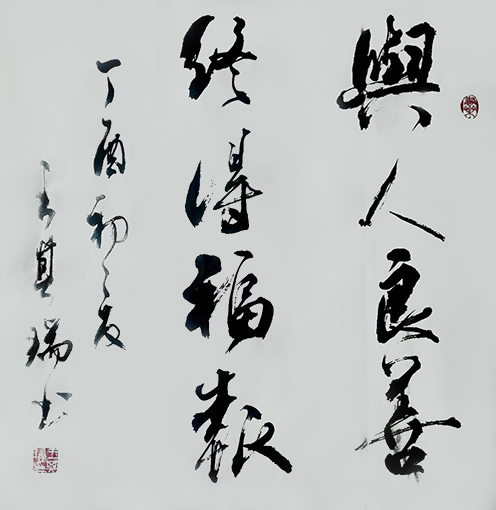 與人良善
終得福報
丁酉初夏
王其瑞书